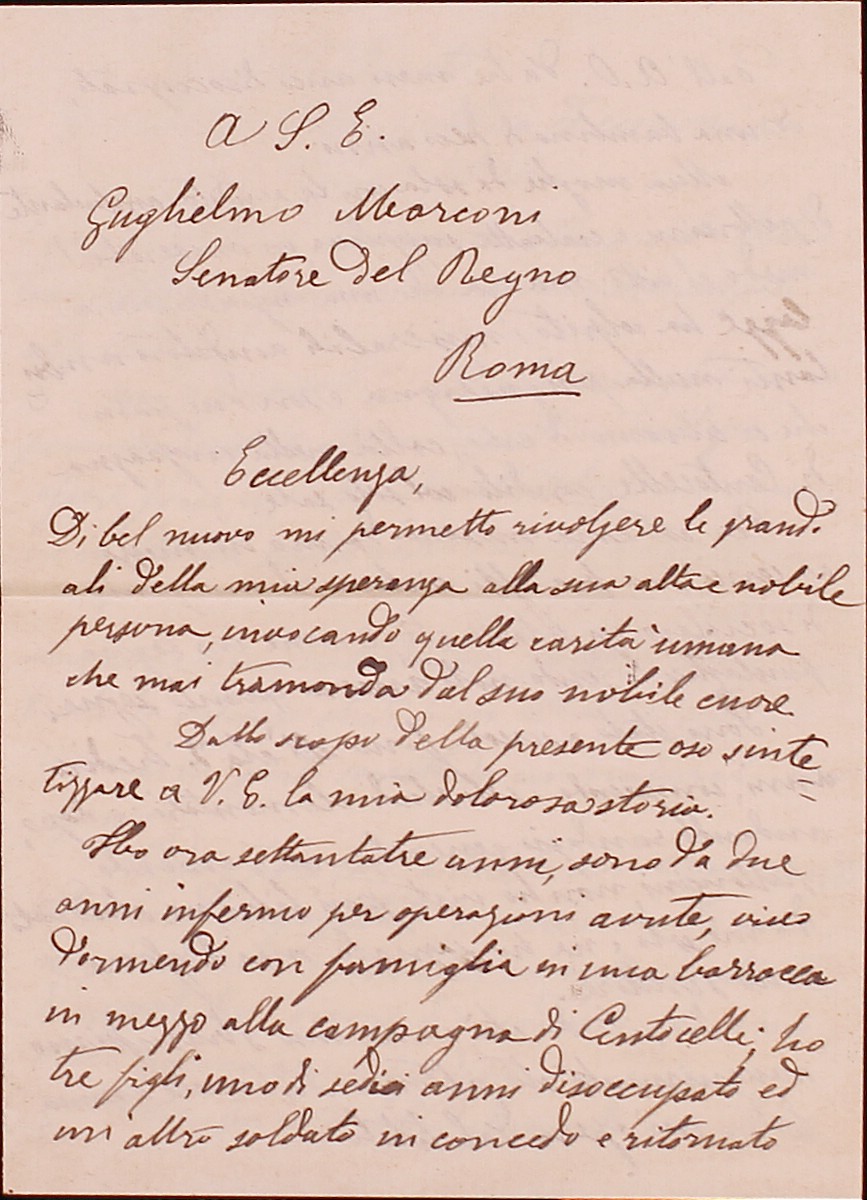 A S. E.
Guglielmo Marconi
Senatore del Regno
Roma
Eccellenza,
Di bel nuovo mi permetto rivolgere le grandi
ali della mia speranza alla sua alta e nobile
persona, invocando quella carità umana
che mai tramonda dal suo nobile cuore
Dallo scopo della presente oso sinte=
tizzare a V. E. la mia dolorosa storia.
Ho ora settantatre anni, sono da due
anni infermo per operazioni avute, vivo
dormendo con famiglia in una barracca
in mezzo alla campagna di Centocelle; ho
tre figli, uno di sedici anni disoccupato ed
un altro soldato in concedo e ritornato